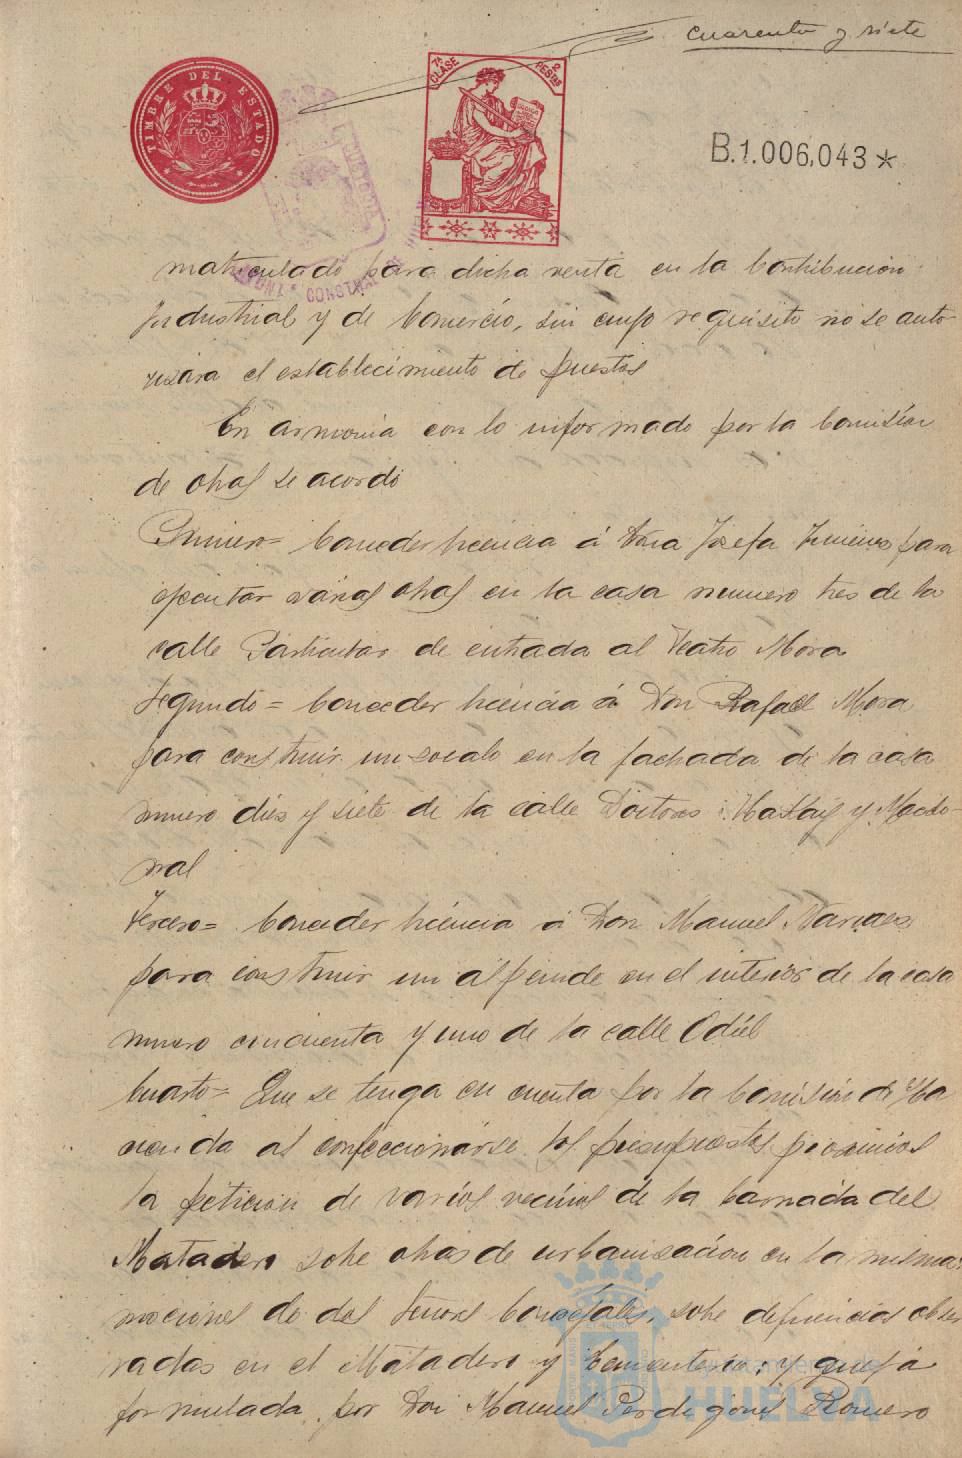 cuarenta y siete
TIMBRE DEL ESTADO
7ª CLASE 2 PESETAS
B.1.006,043*
matriculado para dicha venta en la Contribución
Industrial y de Comercio, sin cuyo requisito no se auto-
rizara el establecimiento de puestos
En armonia con lo informado por la Comisión
de obras se acordó
Primero= Conceder licencia á Doña Josefa Jimenez para
ejecutar varias obras en la casa numero tres de la
calle Particular de entrada al Teatro Mora
Segundo= Conceder licencia á Don Rafael Mora
para construir un zocalo en la fachada de la casa
numero diez y siete de la calle Doctores y Macdo-
nal
Tercero= Conceder licencia á Don Manuel Narvaez
para construir un alpende en el interior de la casa
numero cincuenta y uno de la calle Odiel
Cuarto= Que se tenga en cuenta por la Comisión de Ha
cienda al confeccionarse los presupuestos proximos
la peticion de varios vecinos de la barriada del
Matadero sobre obras de urbanizacion en la misma
mociones de dos Señores Concejales, sobre deficiencias obser
vadas en el Matadero y Cementerio; y queja
formulada por Don Manuel Perdigones Romero
Ayuntamiento de
HUELVA